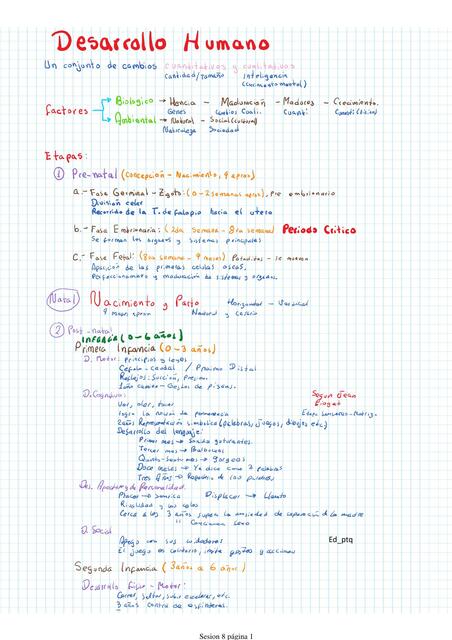 Desarrollo Humano
Un conjunto de cambios cuantitativos y cualitativos
cantidad/tamaño Inteligencia
(crecimiento mental)
factores Biológico → Herencia - Maduración - Madores - Crecimiento.
Genes Cambios Cuali. Cuanti
Ambiental → Natural - Social (cultural)
Naturaleza Sociedad
Etapas:
① Pre-natal (Concepción - Nacimiento, 9 aprox)
a.- Fase Germinal - Zigoto: (0-2 semanas aprox), Pre embrionario
División celer
Recorrido de la T. de falopio hacia el utero
b.- Fase Embrionaria: (2da Semana - 8va semana) Periodo Crítico
Se forman los órganos y sistemas principales
c.- Fase Fetal: (8va semana - 9 meses) Pataditas - se mueven
Aparición de las primeras celulas oseas.
Perfeccionamiento y maduración de sistemas y organ.
Natal Nacimiento y Parto Horizontal - Vertical
9 meses aprox Natural y cesária
② Post-natal
INFANCIA (0-6 años)
Primera Infancia (0-3 años)
D. Motor: Principios y leyes
Cefalo-caudal / Proximo Distal
Reflejos: Succión, Presion.
1año camina - Dejar de pisana.
D. Cognitivo: Segun Jean
Piaget
Ver, oler, tocar
logra la noción de permanencia Etapa Sensorio-Motriz.
2años Representación simbolica (palabras, juegos, dibujos etc)
Desarrollo del lenguaje:
Primer mes → Sonido guturantes
Tercer mes → Balbuceos
Quinto-Sexto mes → Gorgeos
Doce meses → Ya dice como 2 palabras
Tres Años → Repertorio de 100 palabras
Des. Afectivo y de Personalidad.
Placer → Sonrisa Displacer → Llanto
Rivalidad y los celos
Cerca a los 3 años supera la ansiedad de separación de la madre
" Conciencia sexo
D. Social
Apego con sus cuidadores Ed_ptq
El juego es solitario, imita gestos y acciones
Segunda Infancia (3 años a 6 años)
Desarrollo Físico - Motor:
Correr, saltar, subir escaleras, etc.
3 años control de esfínteres.
Sesion 8 página 1